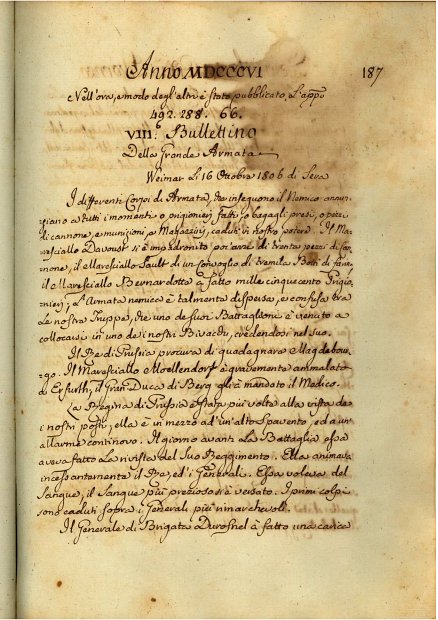 Anno MDCCCVI
187
Nell'ora, e modo degl'altri è stato pubblicato, L'app.º
492. 288. 66.
VIII.º Bullettino
Della Grande Armata
Weimar Li 16 Ottobra 1806 di Sera
I differenti Corpi di Armata, che inseguono il Nemico annun-
ziano a tutti i momenti o prigionieri fatti, o bagagli presi, o pezzi
di cannone, e munizioni, o Magazzini, caduti in nostro potere. Il Ma-
resciallo Davoust si è impadronito poc'anzi di trenta pezzi di can-
none, il Maresciallo Soult di un convoglio di tremila Botti di farina,
il Maresciallo Bernardotte à fatto mille cinquecento Prigio-
nieri; L'Armata nemica è talmente dispersa, e confusa tra
Le nostre Truppe, che uno de suoi Battaglioni è venuto a
collocarsi in uno de i nostri Bivachi, credendosi nel suo.
Il Re di Prussia procura di guadagnare Magdebour-
go. Il Maresciallo Moellendorf è gravemente ammalato
a Erfurth, il Gran Duca di Berg gli à mandato il Medico.
La Regina di Prussia è stata più volte alla vista de
i nostri posti, ella è in mezzo ad un'alto spavento, ed a un
allarme continovo. Il giorno avanti La Battaglia essa
aveva fatto La rivista del Suo Reggimento. Ella animava
incessantemente il Re, ed i Generali. Essa voleva del
Sangue, il Sangue più prezioso si è versato. I primi colpi
sono caduti sopra i Generali più rimarchevoli.
Il Generale di Brigata Durosnel à fatto una carica